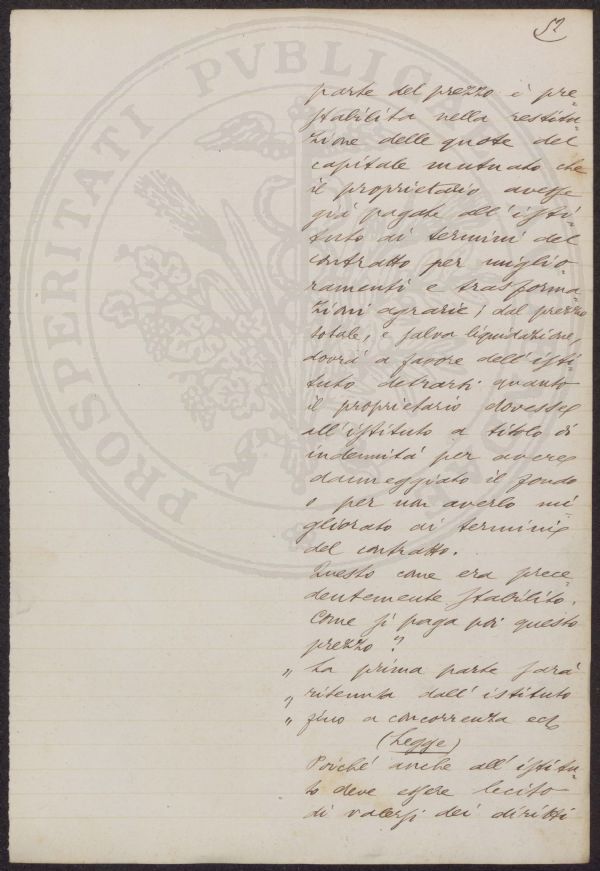 52
parte del prezzo è pre=
stabilita nella restitu=
zione delle quote del
capitale mutuato che
il proprietario avesse
già pagate all'isti=
tuto ai termini del
contratto per miglio=
ramenti e trasforma=
zioni agrarie; dal prezzo
totale, e salva liquidazione,
dovrà a favore dell'isti=
tuto detrarsi quanto
il proprietario dovesse
all'istituto a titolo di
indennità per avere
danneggiato il fondo
o per non averlo mi=
gliorato ai termini
del contratto.
Questo come era prece=
dentemente stabilito.
Come si paga poi questo
prezzo?
" La prima parte sarà
" ritenuta dall'istituto
" fino a concorrenza ecc
(Legge)
Poiché anche all'istitu=
to deve essere lecito
di valersi dei diritti
PROSPERITATI PVBLICAE